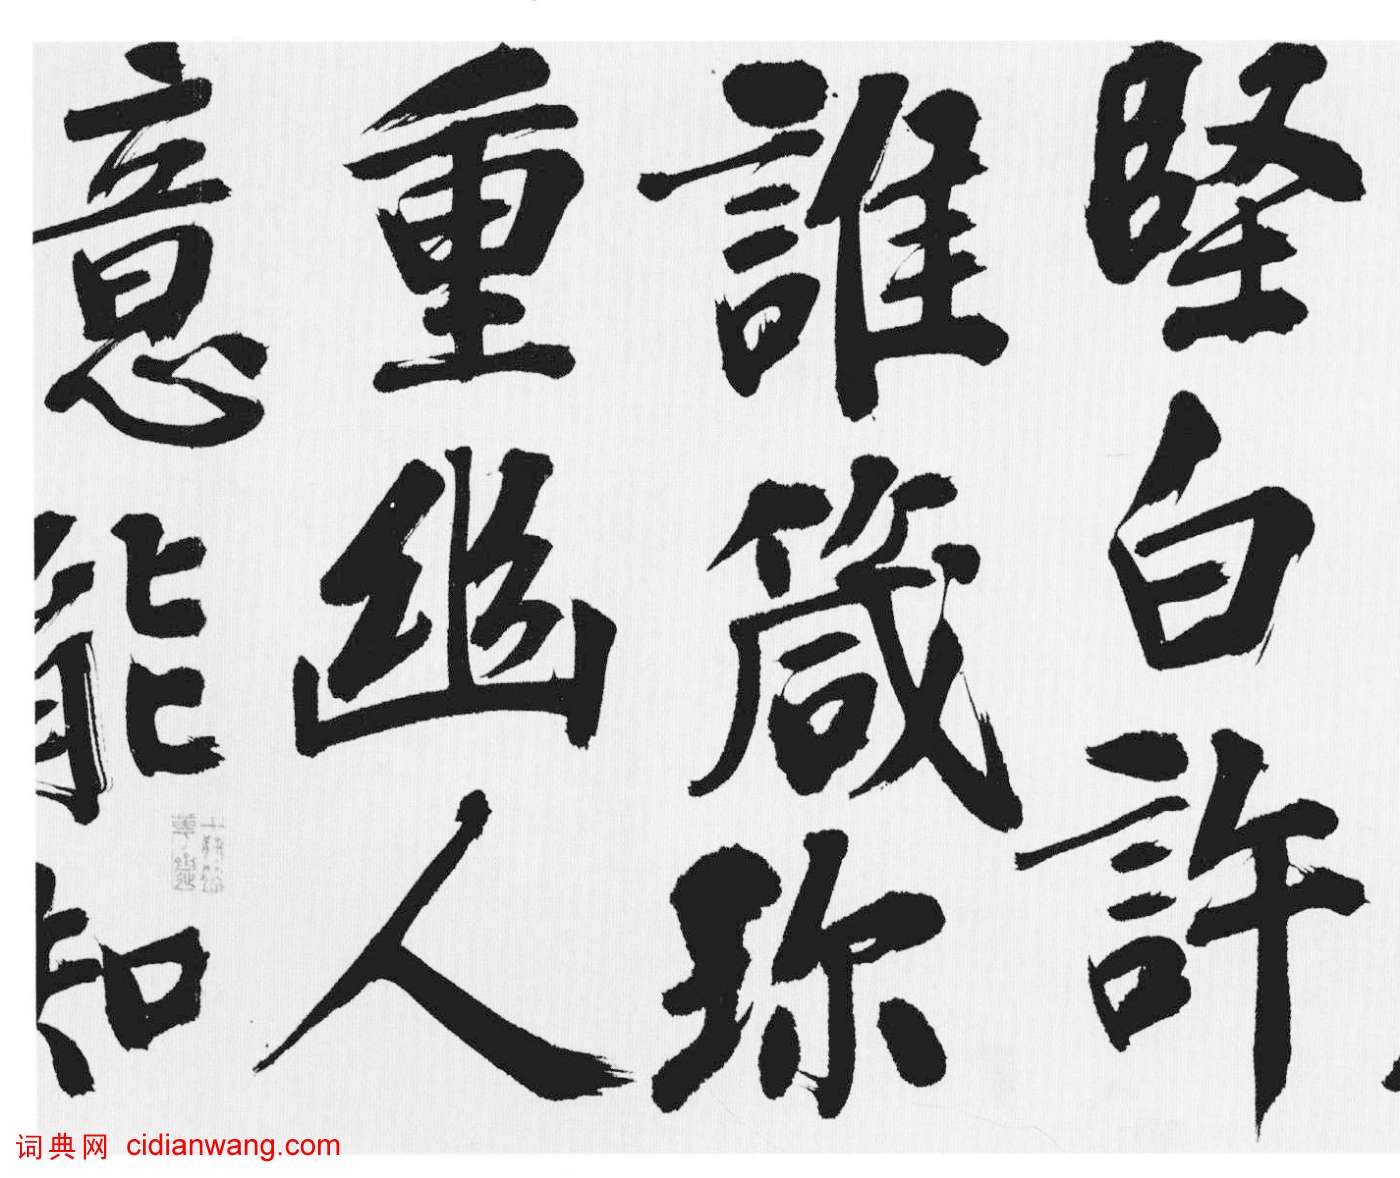 堅白許
誰箴珎
重幽人
意能知
词典网 cidianwang.com